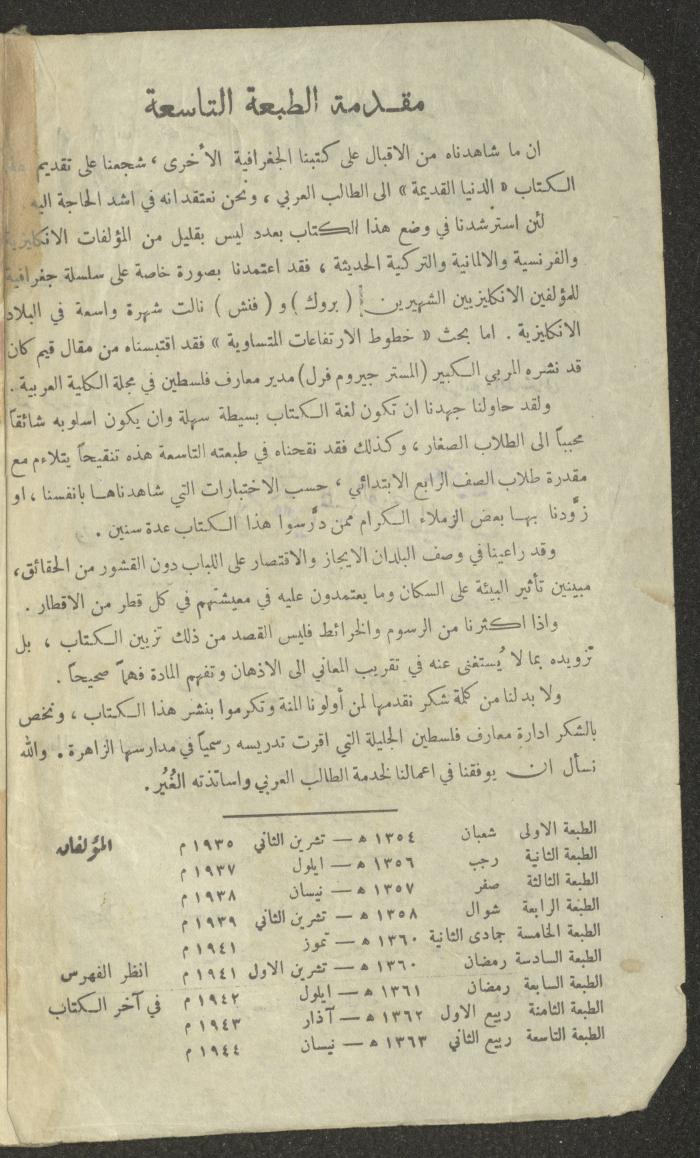 مقدمة الطبعة التاسعة
ان ما شاهدناه من الاقبال على كتبنا الجغرافية الأخرى ، شجعنا على تقديم
الكتاب « الدنيا القديمة » الى الطالب العربي ، ونحن نعتقد انه في اشد الحاجة اليه
لئن استرشدنا في وضع هذا الكتاب بعدد ليس بقليل من المؤلفات الانكليزية
والفرنسية والالمانية والتركية الحديثة ، فقد اعتمدنا بصورة خاصة على سلسلة جغرافية
للمؤلفين الانكليزيين الشهيرين ( بروك ) و ( فنش ) نالت شهرة واسعة في البلاد
الانكليزية . اما بحث « خطوط الارتفاعات المتساوية » فقد اقتبسناه من مقال قيم كان
قد نشره المربي الكبير (المستر جيروم فرل) مدير معارف فلسطين في مجلة الكلية العربية .
ولقد حاولنا جهدنا ان تكون لغة الكتاب بسيطة سهلة وان يكون اسلوبه شائقاً
محبباً الى الطلاب الصغار ، وكذلك فقد نقحناه في طبعته التاسعة هذه تنقيحاً يتلاءم مع
مقدرة طلاب الصف الرابع الابتدائي ، حسب الاختبارات التي شاهدناها بانفسنا ، او
زوَّدنا بها بعض الزملاء الكرام ممن درَّسوا هذا الكتاب عدة سنين .
وقد راعينا في وصف البلدان الايجاز والاقتصار على اللباب دون القشور من الحقائق،
مبينين تأثير البيئة على السكان وما يعتمدون عليه في معيشتهم في كل قطر من الاقطار .
واذا اكثرنا من الرسوم والخرائط فليس القصد من ذلك تزيين الكتاب ، بل
تزويده بما لا يُستغنى عنه في تقريب المعاني الى الاذهان وتفهم المادة فهماً صحيحاً .
ولا بد لنا من كلمة شكر نقدمها لمن أولونا المنة وتكرموا بنشر هذا الكتاب ، ونخص
بالشكر ادارة معارف فلسطين الجليلة التي اقرت تدريسه رسمياً في مدارسها الزاهرة . والله
نسأل ان يوفقنا في اعمالنا لخدمة الطالب العربي واساتذته الغُيُر .
المؤلفان
الطبعة الاولى شعبان ١٣٥٤ ه — تشرين الثاني ١٩٣٥ م
الطبعة الثانية رجب ١٣٥٦ ه — ايلول ١٩٣٧ م
الطبعة الثالثة صفر ١٣٥٧ ه — نيسان ١٩٣٨ م
الطبعة الرابعة شوال ١٣٥٨ ه — تشرين الثاني ١٩٣٩ م
الطبعة الخامسة جمادى الثانية ١٣٦٠ ه — تموز ١٩٤١ م
الطبعة السادسة رمضان ١٣٦٠ ه — تشرين الاول ١٩٤١ م
الطبعة السابعة رمضان ١٣٦١ ه — ايلول ١٩٤٢ م
الطبعة الثامنة ربيع الاول ١٣٦٢ ه — آذار ١٩٤٣ م
الطبعة التاسعة ربيع الثاني ١٣٦٣ ه — نيسان ١٩٤٤ م
انظر الفهرس
في آخر الكتاب